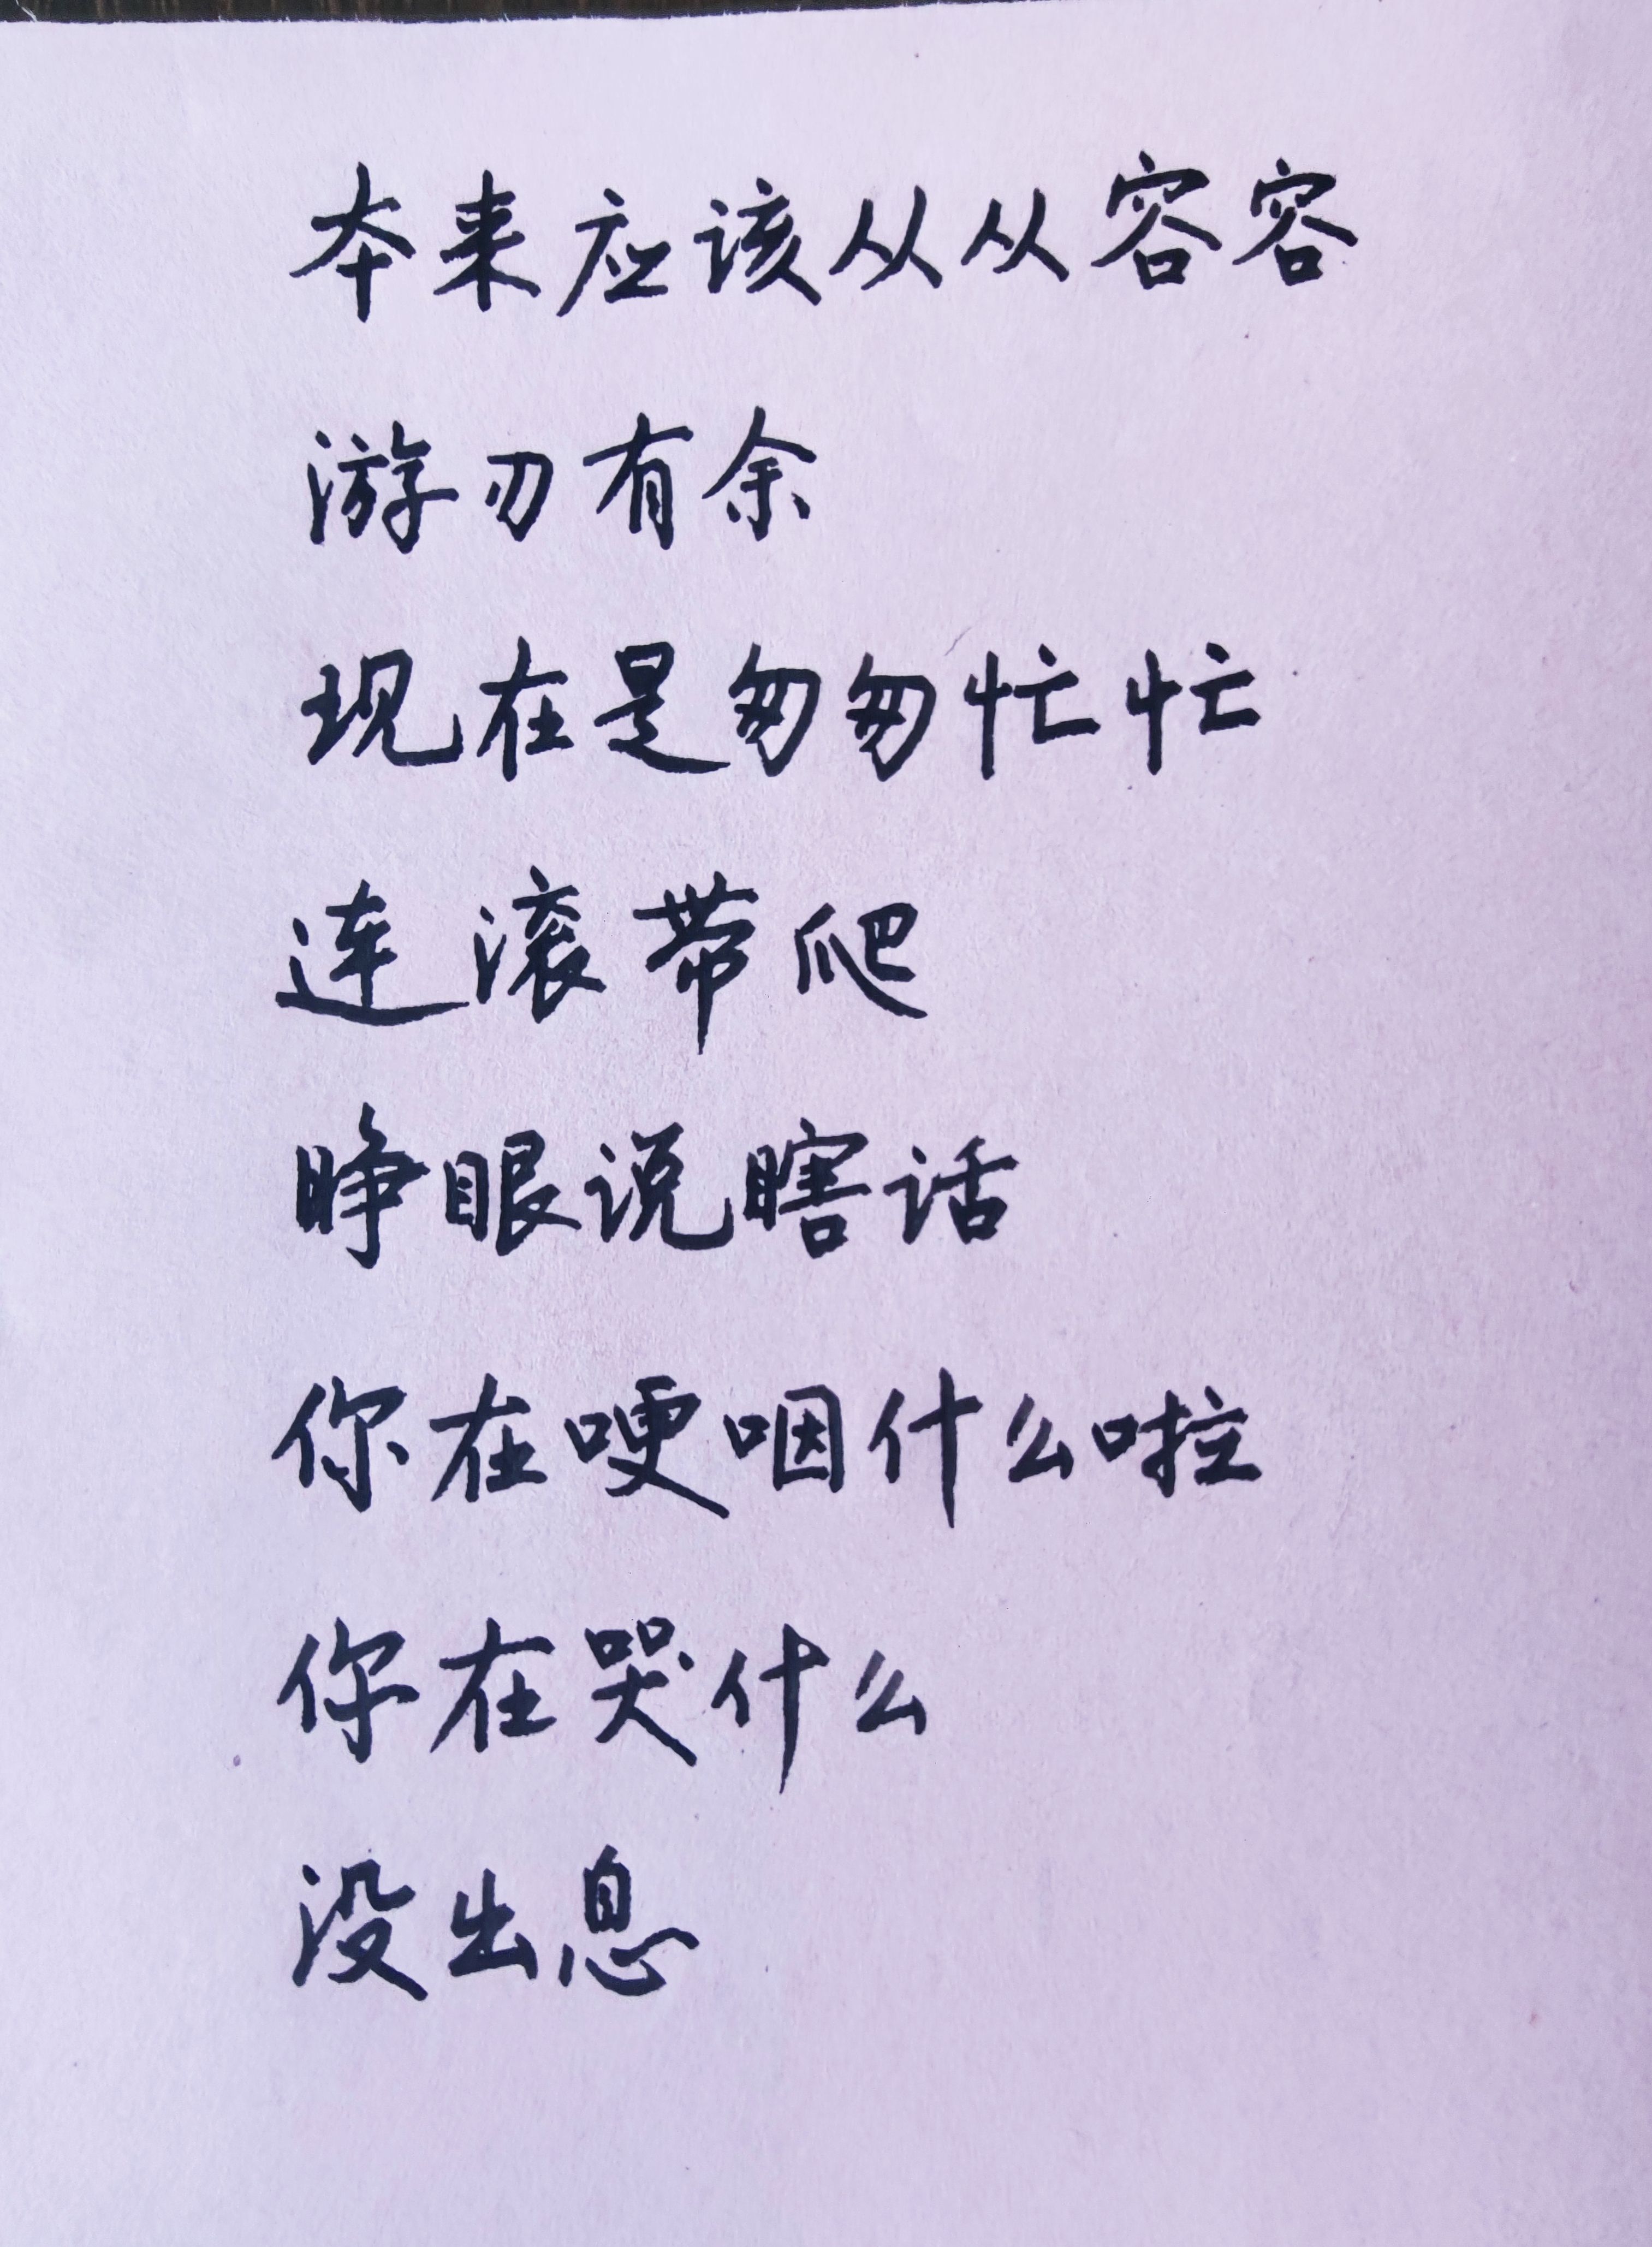 本来应该从从容容
游刃有余
现在是匆匆忙忙
连滚带爬
睁眼说瞎话
你在哽咽什么啦
你在哭什么
没出息